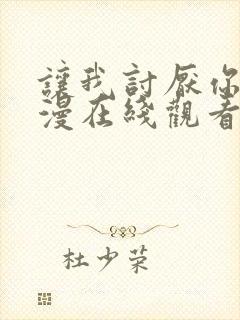 讓我討厭你
漫在綫觀看
杜少荣